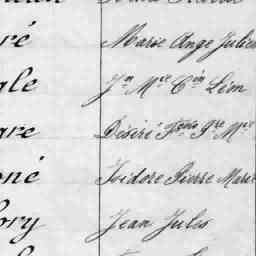 ré Marie Ange Julien
gle Jn Mie Cin Léon
are Désiré Fçois Pre Mie
oné Isidore Pierre Marie
ory Jean Jules